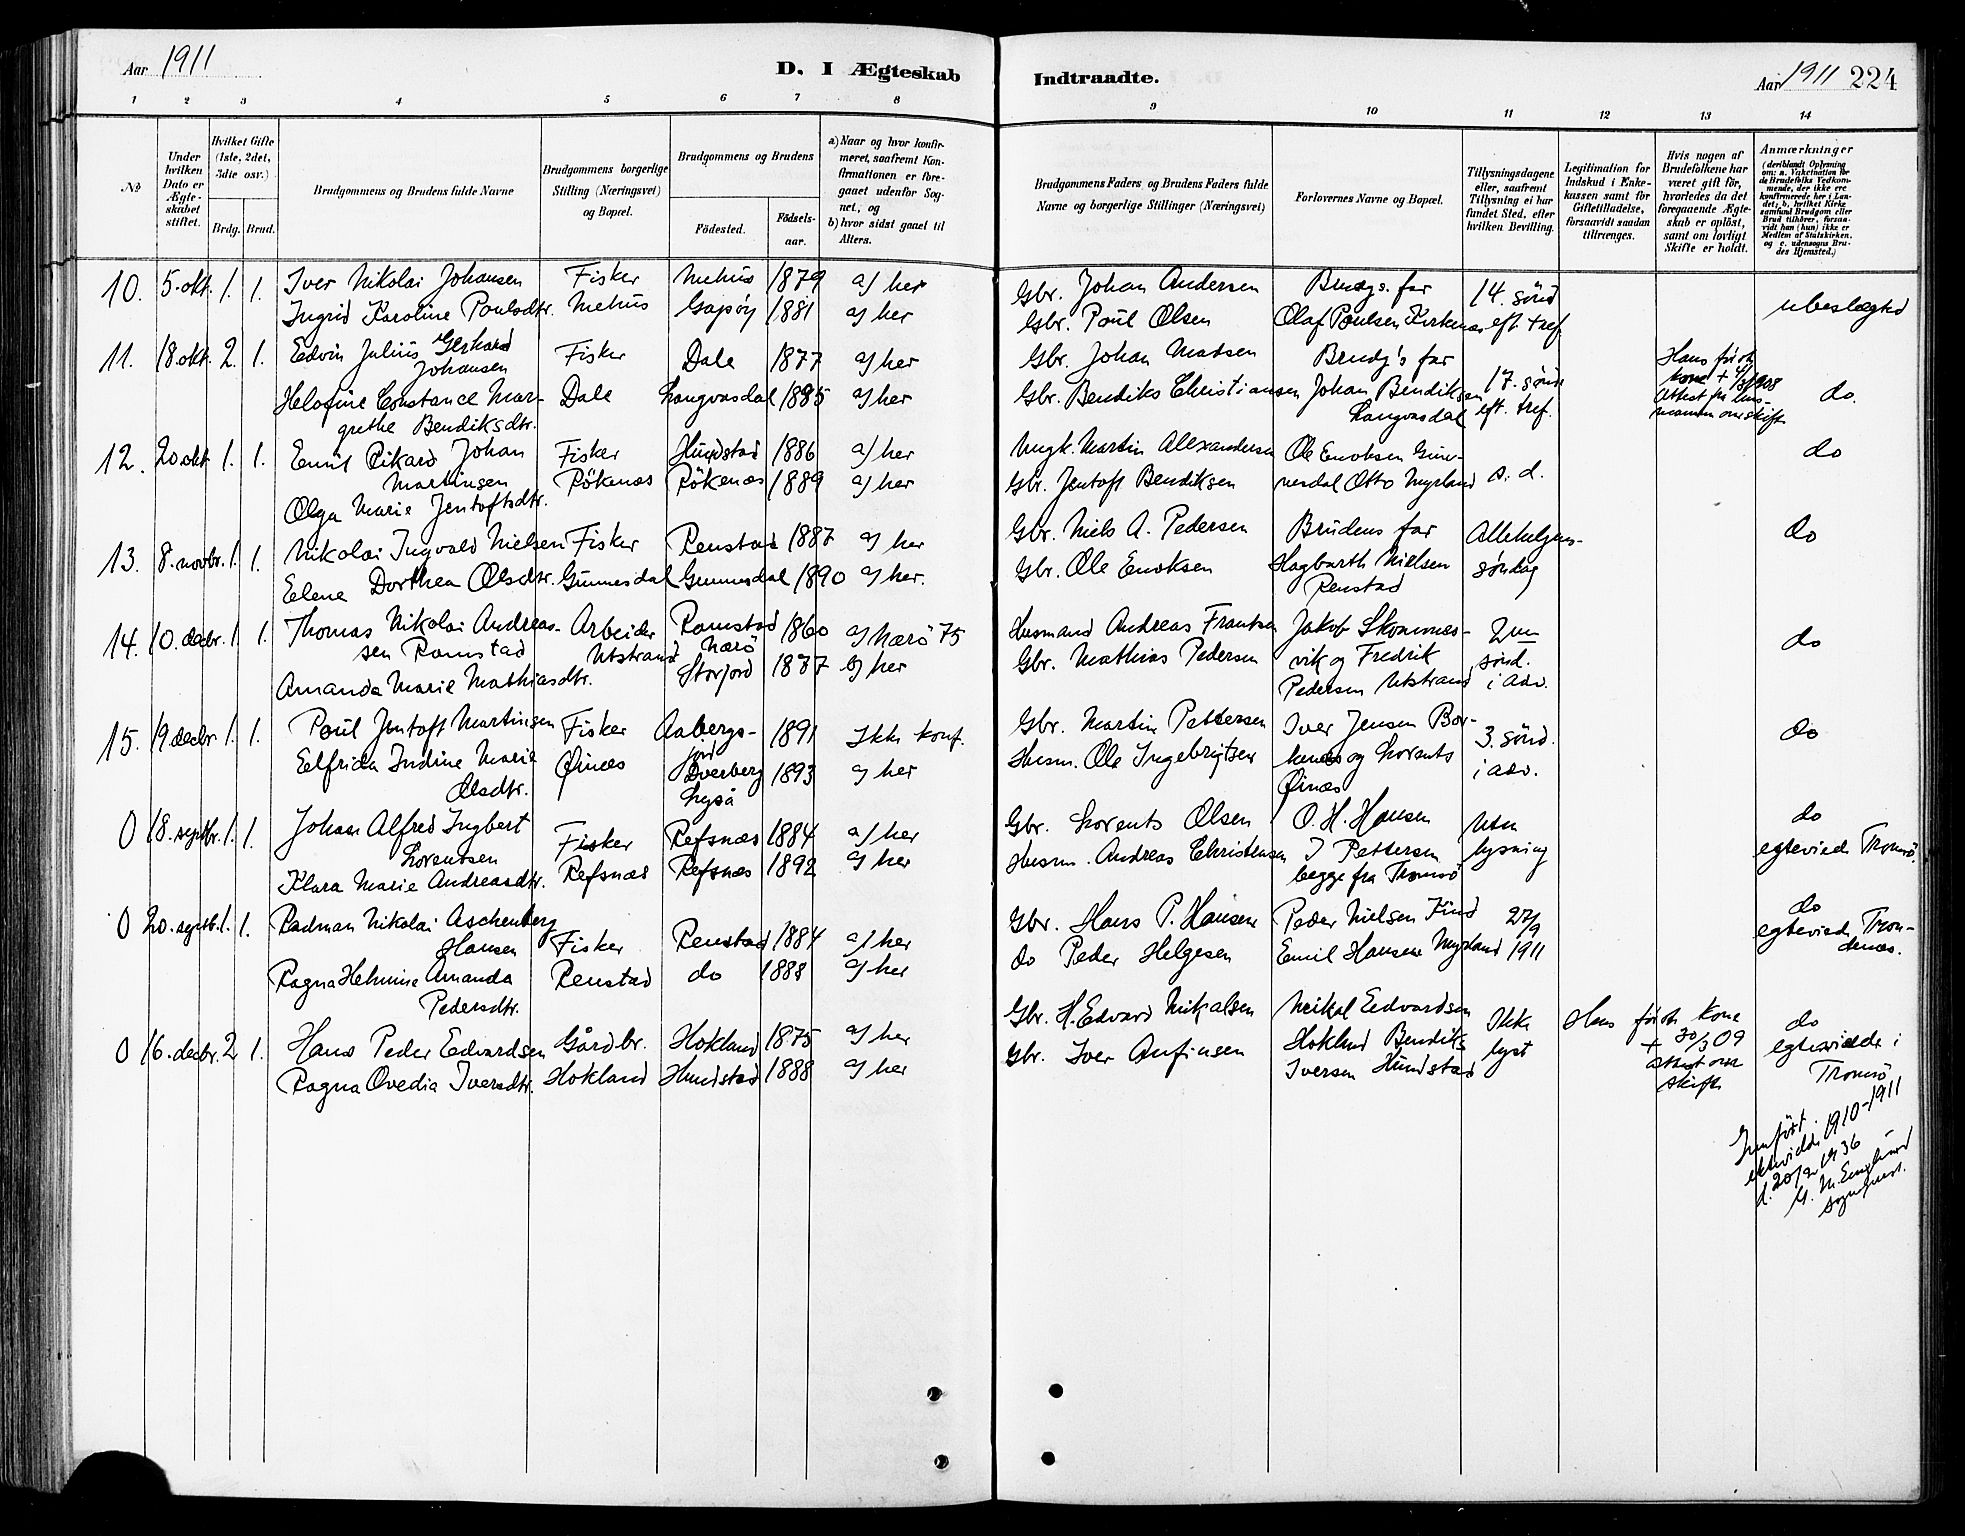 Aar 1911
D. I Ægteskab
Indtraadte.
Aar 1911 224
1 2 3 4 5 6 7 8 9 10 11 12 13 14
No
Under
hvilken
Dato er
Ægte-
skabet
stiftet.
Hvilket Gifte
(1ste, 2det,
3die osv.)
Brdg. Brud.
Brudgommens og Brudens fulde Navne
Brudgommens borgerlige
Stilling (Næringsvei)
og Bopæl.
Brudgommens og Brudens
Fødested.
Fødsels-
aar.
a) Naar og hvor konfir-
meret, saafremt Kon-
firmationen er fore-
gaaet udenfor Sog-
net, og
b) hvor sidst gaaet til
Alters.
Brudgommens Faders og Brudens Faders fulde
Navne og borgerlige Stillinger (Næringsvei)
Forlovernes Navne og Bopæl.
Tillysningsdagene
eller, saafremt
Tillysning ei har
fundet Sted, efter
hvilken Bevilling.
Legitimation for
Indskud i Enke-
kassen samt for
Giftetilladelse,
forsaavidt saadan
tiltrænges.
Hvis nogen af
Brudefolkene har
været gift før,
hvorledes da det
foregaaende Ægte-
skab er opløst,
samt om lovligt
Skifte er holdt.
Anmærkninger
(deriblandt Oplysning
om: a. Vakcination for
de Brudefolks Vedkom-
mende, der ikke ere
konfirmerede her i Lan-
det; b. hvilket Kirke
samfund Brudgom eller
Brud tilhører, forsaa-
vidt han (hun) ikke er
Medlem af Statskirken,
og c. udensogns Bru-
des Hjemsted.)
10. 5. okt. 1. 1. Iver Nikolai Johansen Fisker Mehus 1879 a) her Gbr. Johan Andersen Brudgs. far 14. sønd ubeslegted
Ingrid Karoline Poulsdtr. Mehus Gapøy 1881 a) her Gbr. Poul Olsen Olaf Poulsen Kirkenæs eft tref
11. 18. okt. 2. 1. Edvin Julius Gerhard Fisker Dale 1877 a) her Gbr. Johan Madsen Brudg's far Hans første
Johansen kone + 4/3 1908
Helofine Constance Mar- Dale Langvasdal 1885 a) her Gbr. Bendiks Christiansen Johan Bendiksen 17. sønd Attest fra lens- do.
grethe Bendiksdtr. Langvasdal eft. tref. manden om skifte
12. 20 okt 1. 1. Emil Rikard Johan Fisker Hundstad 1886 a) her Ungk. Martin Alexandersen Ole Enoksen Gun- do
Martinsen Røkenæs Røkenæs 1889 a) her Gbr. Jentoft Bendiksen nesdal Otto Myrland s. d.
Olga Marie Jentoftsdtr.
13. 8. novbr. 1. 1. Nikolai Ingvald Nielsen Fisker Renstad 1887 a) her Gbr. Niels A. Pedersen Brudens far Allehelgens- do
Elene Dorthea Olsdtr. Gunnesdal Gunnesdal 1890 a) her. Gbr. Ole Enoksen Hagbarth Nielsen søndag
Renstad
14. 10. decbr. 1. 1. Thomas Nikolai Andreas- Arbeider Ramstad 1860 a) Nærø 75 Husmand Andreas Frantsen Jakob Skomnes- 2en do
sen Ramstad Utstrand Nærø
Amanda Marie Mathiasdtr. Storjord 1887 a) her Gbr. Mathias Pedersen vik og Fredrik sønd.
Pedersen Utstrand i Adv.
15. 19 decbr. 1. 1. Poul Jentoft Martinsen Fisker Aabergs- 1891 Ikke konf. Gbr. Martin Pettersen Iver Jensen Bor- 3. sønd. do
fjord
Elfrida Indine Marie Øinæs Dverberg 1893 a) her Husm. Ole Ingebrigtsen kenæs og Lorents i adv.
Olsdtr. Øinæs
0 18. septbr. 1. 1. Johan Alfred Ingbert Fisker Refsnæs 1884 a) her Gbr. Lorents Olsen O. H. Hansen Uten do
Lorentsen
Klara Marie Andreasdtr. Refsnæs Refsnæs 1892 a) her Husm. Andreas Christensen I Pettersen lysning egteviede Tromsø.
begge fra Tromsø
0 20. septb. 1. 1. Radman Nikolai Aschenberg Gbr. Hans P. Hansen Peder Nielsen 27/9 do
Hansen Fisker Renstad 1884 a) her egteviede Tron-
Ragna Helmine Amanda Renstad do 1888 a) her do Peder Helgesen Emil Hansen Myrland 1911 denæs.
Pedersdtr.
0 16. decbr. 2 1. Hans Peder Edvardsen Gårdbr. Hokland 1875 a) her Gbr. H. Edvard Mikalsen Mikal Edvardsen Ikke Hans første kone do
Hokland Bendiks + 30/3 09 egteviede i
Ragna Ovedia Iversdtr. Hokland Hundstad 1888 a) her Gbr. Iver Anfinsen Iversen Hundstad lyst Attest om Tromsø
skifte
Jemført
1910-1911
1936
sogneprest.